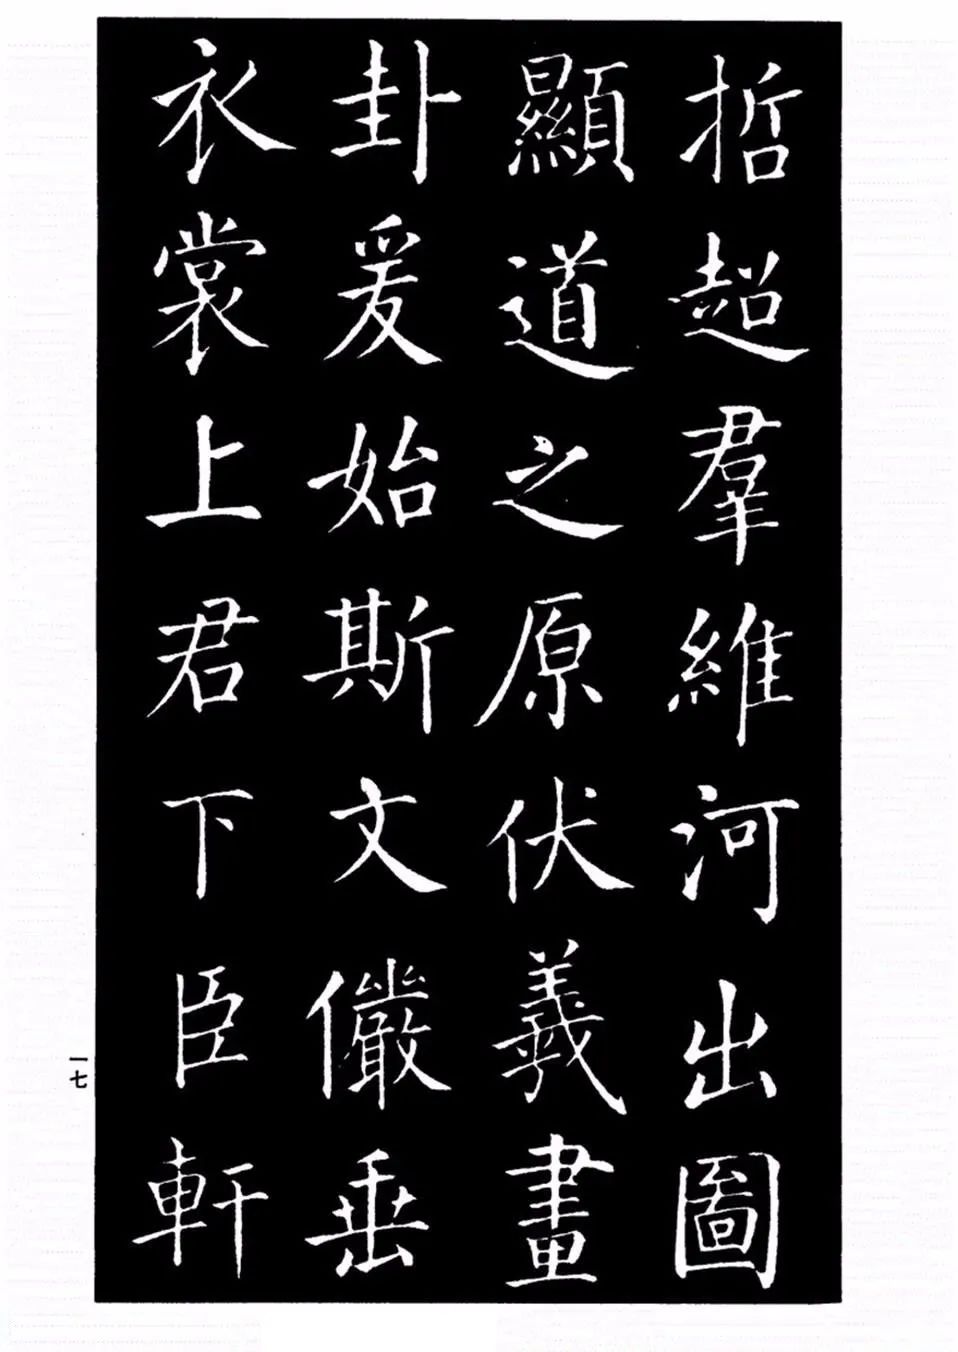 哲超羣維河出圖
顯道之原伏羲畫
卦爰始斯文儼垂
衣裳上君下臣軒
一七